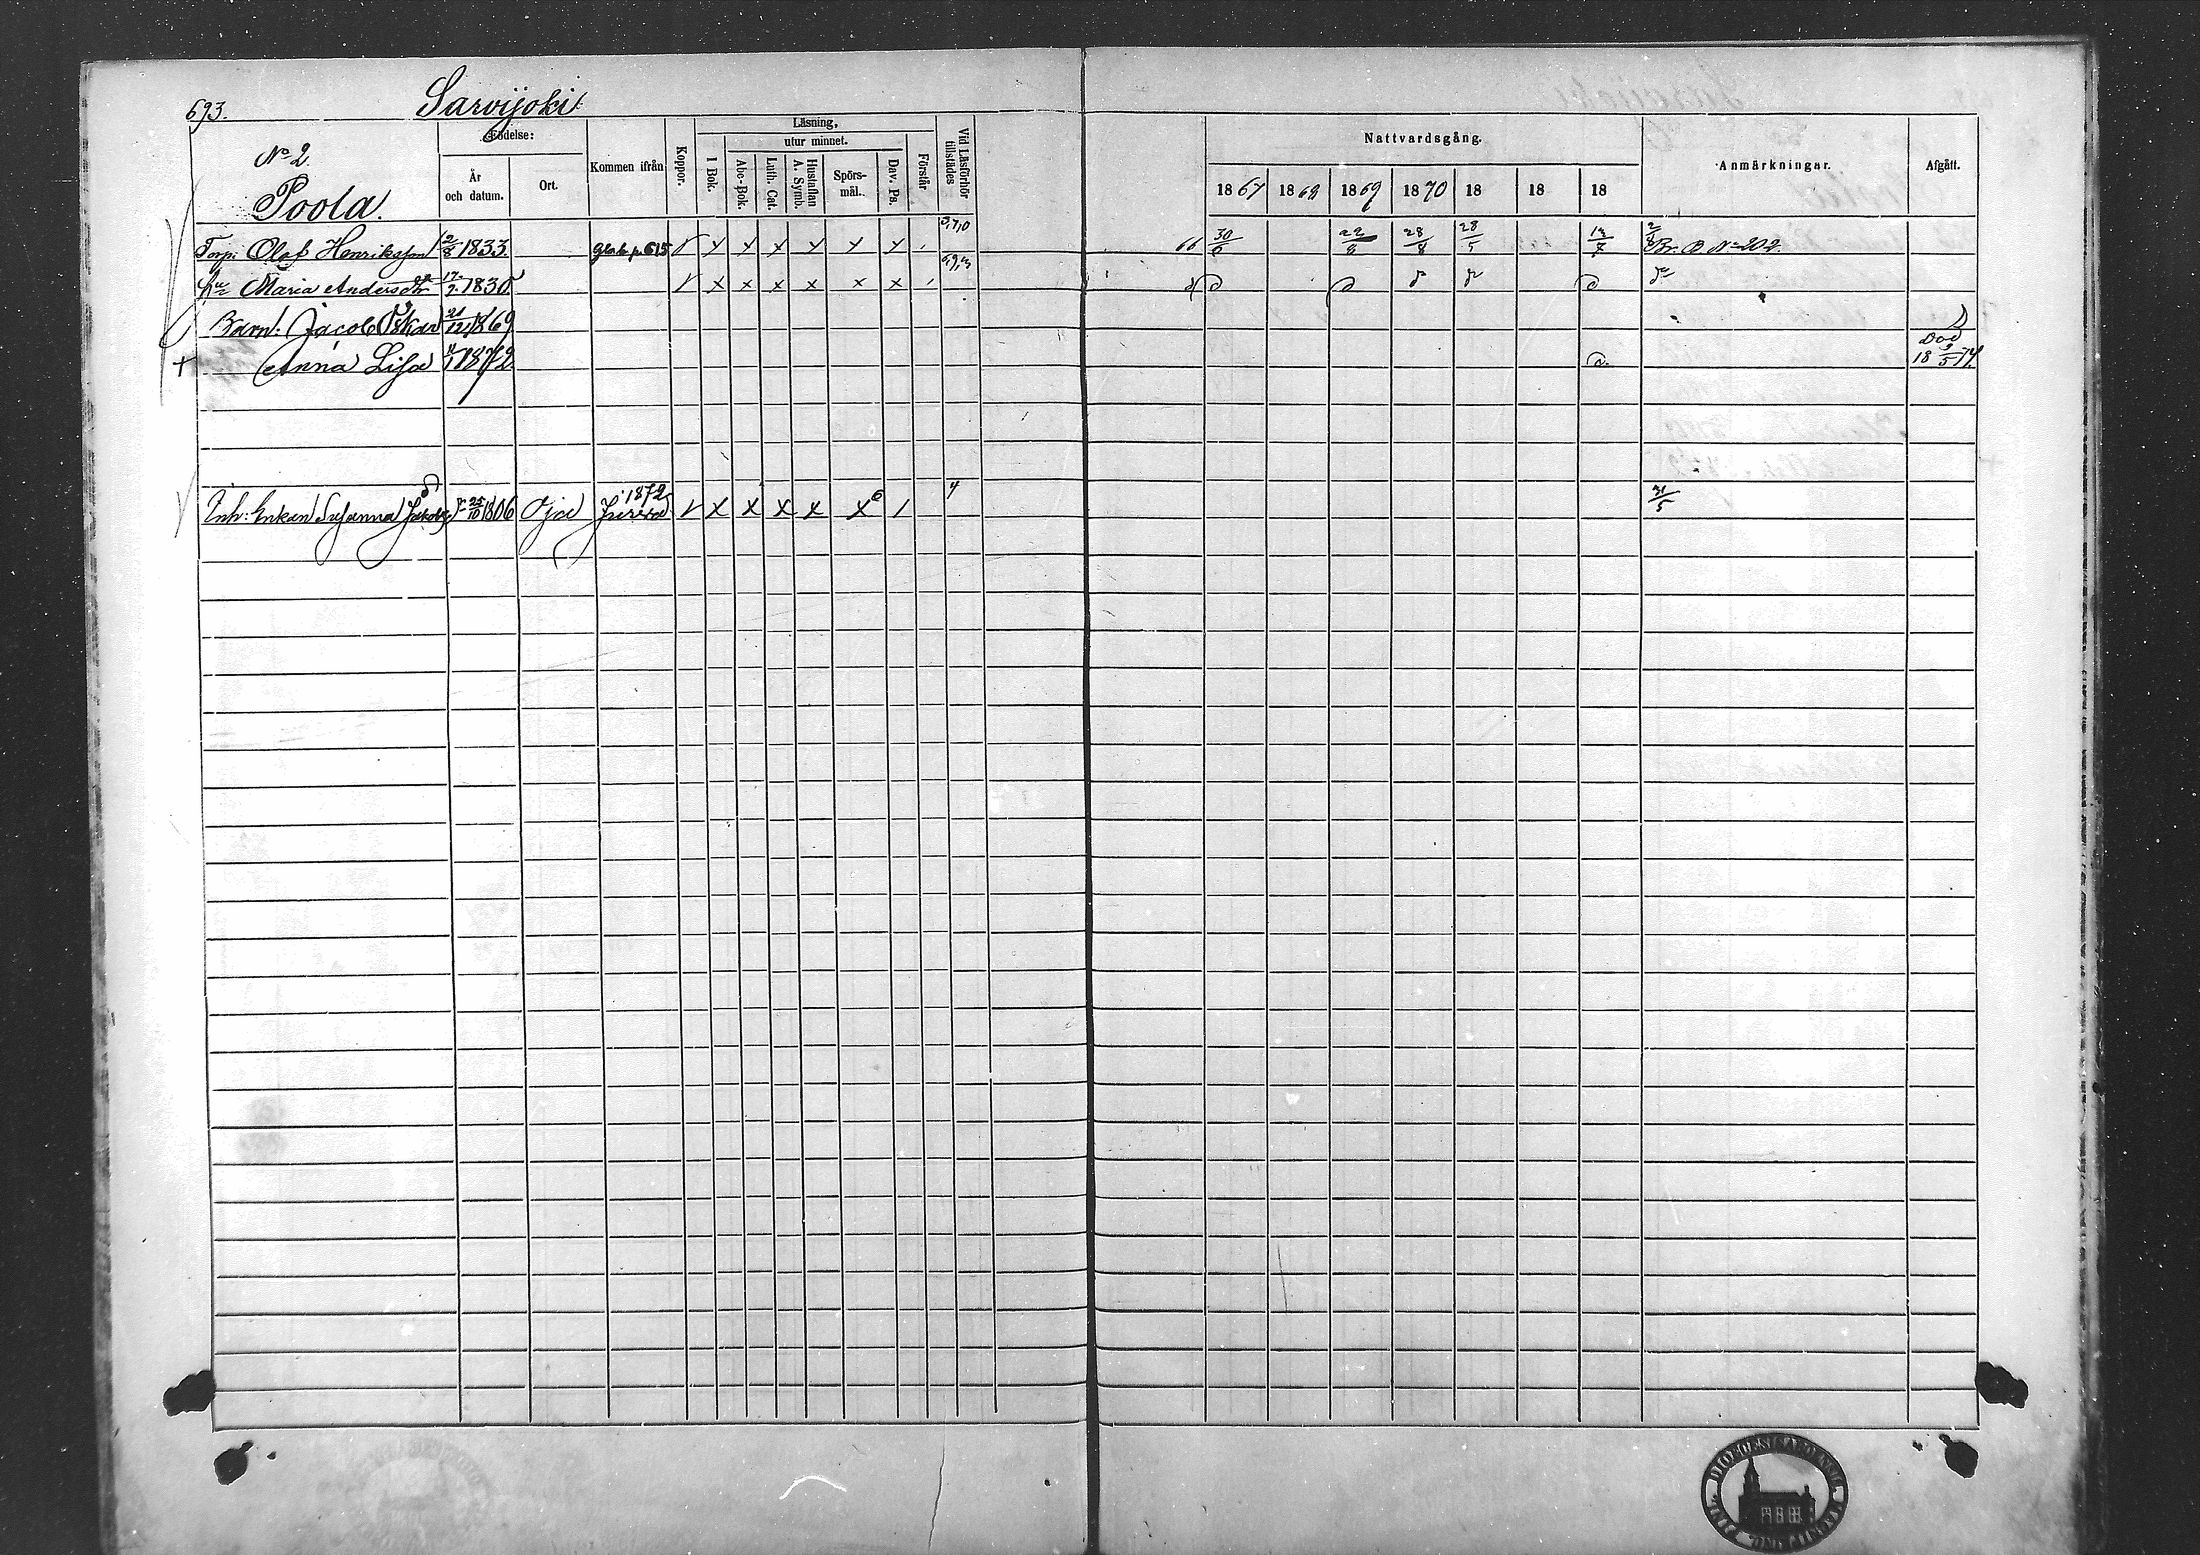 693. Sarvijoki
No 2.
Poola.
Födelse:
År och datum.
Ort.
Kommen ifrån
Koppor.
Läsning,
I Bok.
utur minnet.
Abc-Bok.
Luth. Cat.
Hustaflan A. Symb.
Spörs-mål.
Dav. Ps.
Förstår
Vid Läsförhör tillstädes
Nattvardsgång.
1867 1868 1869 1870 18 18 18
Anmärkningar.
Afgått.
Torp: Olof Henriksson 2/8 1833. Gla b p. 615 V x x x x x x 66 30/6 22/8 28/8 28/5 13/7 Br. B. No 202.
Hu Maria Andersdr 17/2 1830. V x x x x x x
Barn: Jacob Oskar 21/12 1869
+ Anna Lisa 11/1 1872. Död 18 9/5 74.
Inh: Enkan Susanna Jakobs 25/10 1806 Öja 1872 Jurva V X X X X X 6 / 4 31/5